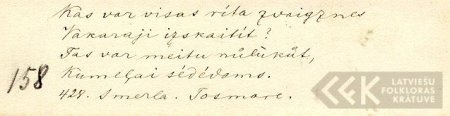 Kas var visas rīta zvaigznes
Vakarāji izskaitīt?
Tas var meitu nūlūkūt,
Kumeļai sēdēdams.
158
428. Smerla. Tosmare.
LATVIEŠU
FOLKLORAS
KRĀTUVE